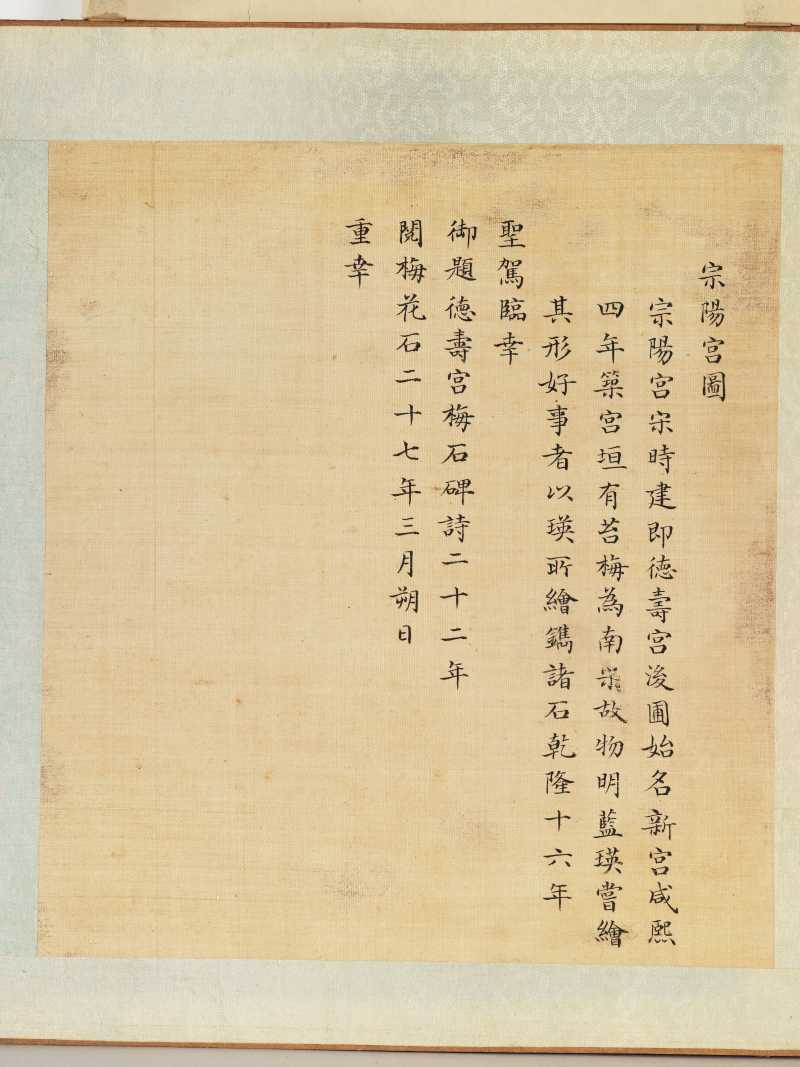 宗陽宮圖
宗陽宮宋時建即德壽宮後圃始名新宮咸熙
四年築宮垣有苔梅為南宋故物明藍瑛嘗繪
其形好事者以瑛所繪鐫諸石乾隆十六年
聖駕臨幸
御題德壽宮梅石碑詩二十二年
閱梅花石二十七年三月朔日
重幸